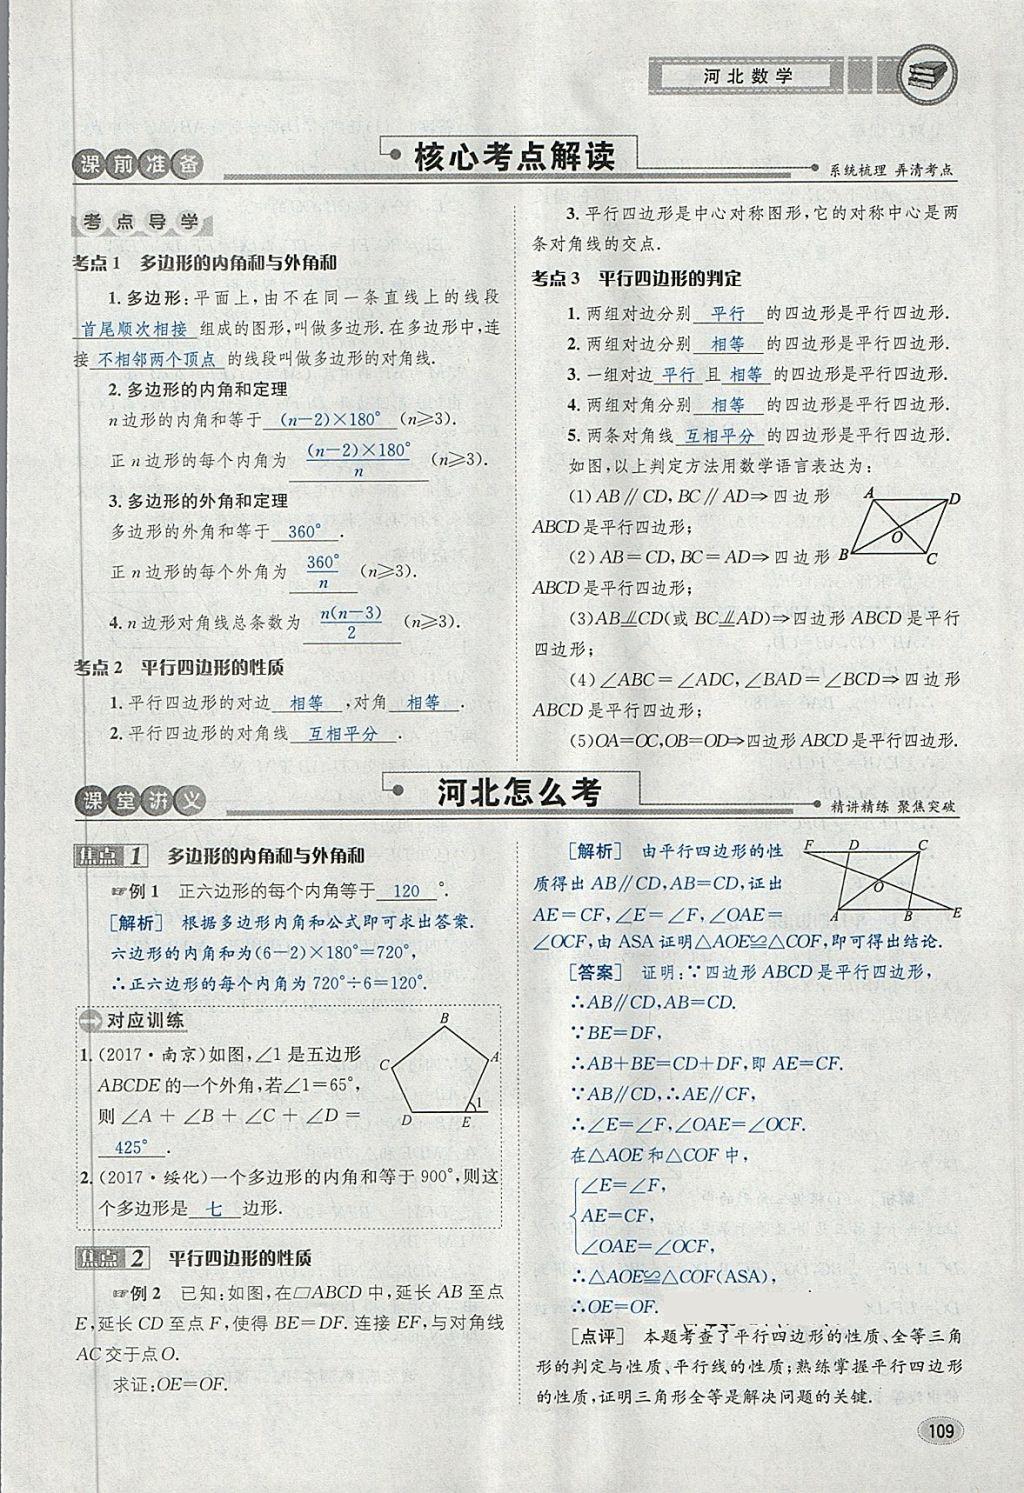 河北数学
课前准备
核心考点解读
系统梳理 弄清考点
考点导学
考点1 多边形的内角和与外角和
1. 多边形:平面上,由不在同一条直线上的线段
首尾顺次相接 组成的图形,叫做多边形.在多边形中,连
接 不相邻两个顶点 的线段叫做多边形的对角线.
2. 多边形的内角和定理
n边形的内角和等于 (n-2)×180° (n≥3).
正n边形的每个内角为 (n-2)×180°/n (n≥3).
3. 多边形的外角和定理
多边形的外角和等于 360° .
正n边形的每个外角为 360°/n (n≥3).
4. n边形对角线总条数为 n(n-3)/2 (n≥3).
考点2 平行四边形的性质
1. 平行四边形的对边 相等 ,对角 相等 .
2. 平行四边形的对角线 互相平分 .
3. 平行四边形是中心对称图形,它的对称中心是两
条对角线的交点.
考点3 平行四边形的判定
1. 两组对边分别 平行 的四边形是平行四边形.
2. 两组对边分别 相等 的四边形是平行四边形.
3. 一组对边 平行 且 相等 的四边形是平行四边形.
4. 两组对角分别 相等 的四边形是平行四边形.
5. 两条对角线 互相平分 的四边形是平行四边形.
如图,以上判定方法用数学语言表达为:
(1)AB∥CD,BC∥AD⇒四边形
ABCD是平行四边形;
(2)AB=CD,BC=AD⇒四边形
ABCD是平行四边形;
A
D
O
B
C
(3)AB⫫CD(或BC⫫AD)⇒四边形ABCD是平行
四边形;
(4)∠ABC=∠ADC,∠BAD=∠BCD⇒四边形
ABCD是平行四边形;
(5)OA=OC,OB=OD⇒四边形ABCD是平行四边形.
课堂讲义
河北怎么考
精讲精练 聚焦突破
焦点1 多边形的内角和与外角和
☞例1 正六边形的每个内角等于 120 °.
[解析] 根据多边形内角和公式即可求出答案.
六边形的内角和为(6-2)×180°=720°,
∴正六边形的每个内角为720°÷6=120°.
对应训练
1. (2017·南京)如图,∠1是五边形
ABCDE的一个外角,若∠1=65°,
则∠A+∠B+∠C+∠D=
425° .
B
A
C
1
D
E
2. (2017·绥化)一个多边形的内角和等于900°,则这
个多边形是 七 边形.
焦点2 平行四边形的性质
☞例2 已知:如图,在▱ABCD中,延长AB至点
E,延长CD至点F,使得BE=DF.连接EF,与对角线
AC交于点O.
求证:OE=OF.
[解析] 由平行四边形的性
质得出AB∥CD,AB=CD,证出
AE=CF,∠E=∠F,∠OAE=
∠OCF,由ASA证明△AOE≌△COF,即可得出结论.
F
D
C
O
A
B
E
[答案] 证明:∵四边形ABCD是平行四边形,
∴AB∥CD,AB=CD.
∵BE=DF,
∴AB+BE=CD+DF,即AE=CF.
∵AB∥CD,∴AE∥CF,
∴∠E=∠F,∠OAE=∠OCF.
在△AOE和△COF中,
∠E=∠F,
AE=CF,
∠OAE=∠OCF,
∴△AOE≌△COF(ASA),
∴OE=OF.
[点评] 本题考查了平行四边形的性质、全等三角
形的判定与性质、平行线的性质;熟练掌握平行四边形
的性质,证明三角形全等是解决问题的关键.
109